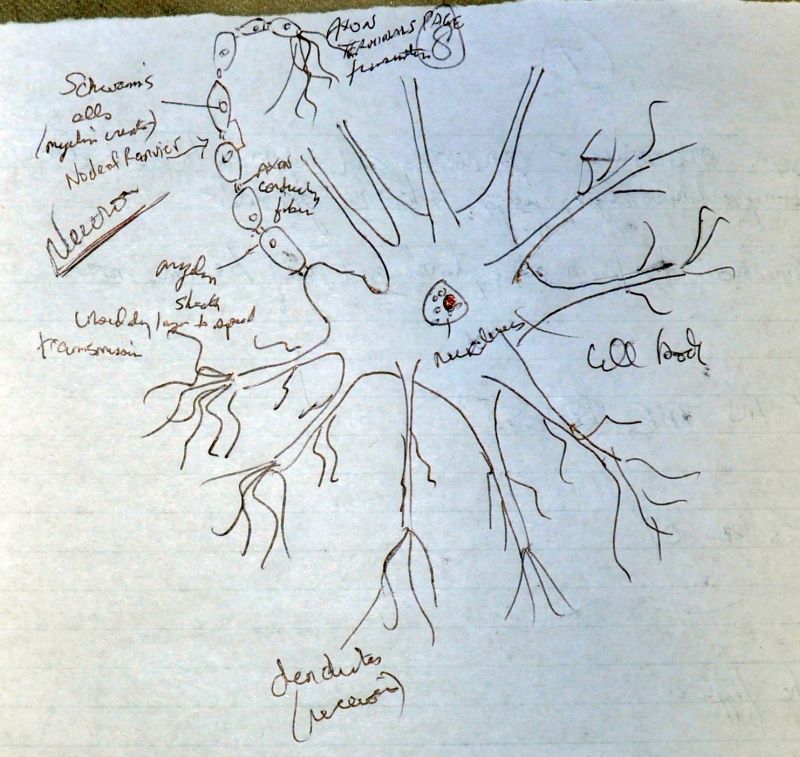 AXON
TERMINALS
PAGE
8
Schwann's
cells
(myelin creates)
Node of Ranvier
Neuron
AXON
conducting
fiber
myelin
sheath
layer to speed
transmission
nucleus
Cell body
dendrites
(receivers)